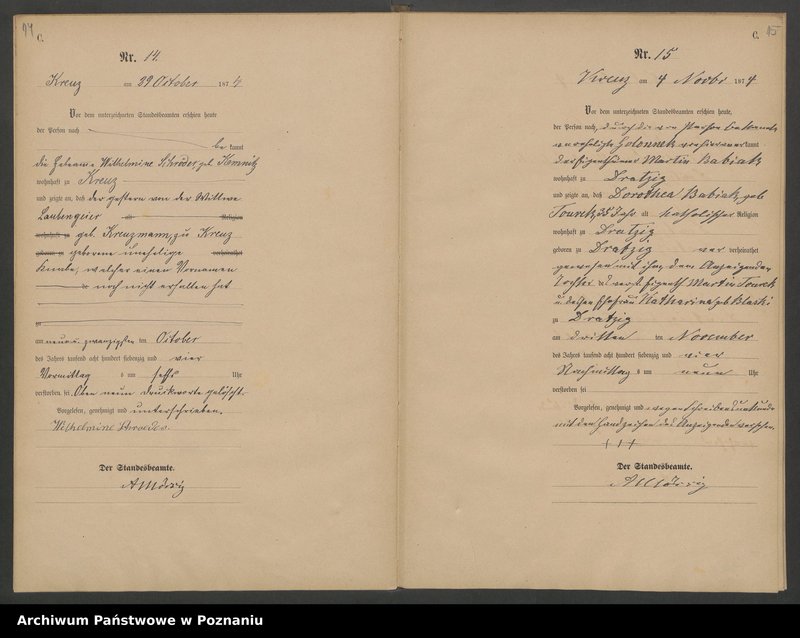 14
C.
Nr. 14.
Kreuz am 29 October 1874
Vor dem unterzeichneten Standesbeamten erschien heute
der Person nach
bekannt
die Hebeamme Wilhelmine Schröder, geb. Kemnitz
wohnhaft zu Kreuz
und zeigte an, daß der gestern von der Wittwe
Laubengeier alt Religion
wohnhaft zu geb. Kreuzmann, zu Kreuz
geboren zu geborene uneheliche verheirathet
Knabe, welcher einen Vornamen
noch nicht erhalten hat
zu
am neun u. zwanzigsten ten October
des Jahres tausend acht hundert siebenzig und vier
Vormittag s um sechs Uhr
verstorben sei. Oben neun Druckworte gelöscht.
Vorgelesen, genehmigt und unterschrieben.
Wilhelmine
Der Standesbeamte.
15
C.
Nr. 15
Kreuz am 4 Novbr 1874
Vor dem unterzeichneten Standesbeamten erschien heute,
der Person nach, durch die von Person bekannte
unverehelichte kannt
der Eigenthümer Martin Babiak
wohnhaft zu Dratzig
und zeigte an, daß Dorothea Babiak, geb
Tourek, 35 Jahr alt katholischer Religion
wohnhaft zu Dratzig
geboren zu Dratzig war verheirathet
gewesen mit ihm, dem Anzeigenden
Tochter d verst. Eigenth Martin Tourek
u dessen Ehefrau Katharina geb Blaski
zu Dratzig
am dritten ten November
des Jahres tausend acht hundert siebenzig und vier
Nachmittag s um neun Uhr
verstorben sei
Vorgelesen, genehmigt und wegen Schreibensunkunde
mit den Handzeichen des Anzeigenden versehen.
† † †
Der Standesbeamte.
Archiwum Państwowe w Poznaniu